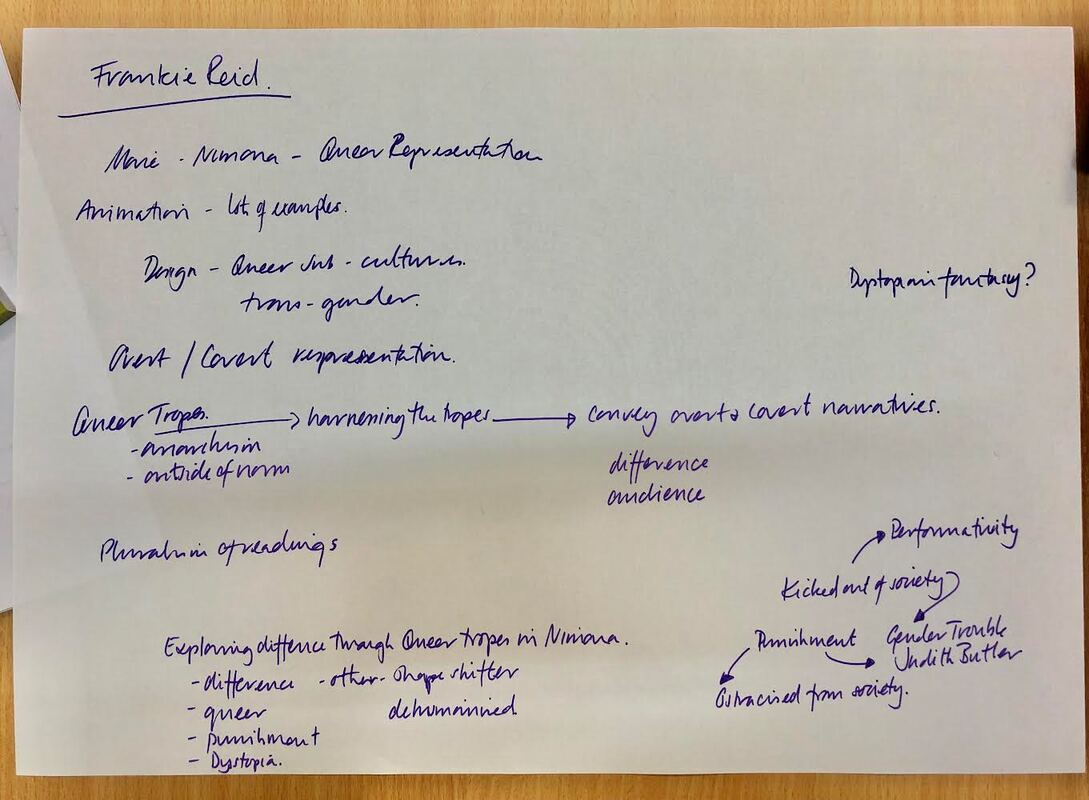 Frankie Reid.
Movie - Nimona - Queer Representation
Animation - lots of examples.
Design - Queer sub-cultures.
trans-gender.
Dystopian fantasy?
Overt / Covert representation.
Queer Tropes. harnessing the tropes convey overt & covert narratives.
- anarchism
- outside of norm
difference
audience
Pluralism of readings
Performativity
Kicked out of society
Punishment
Gender Trouble
Judith Butler
Ostracised from society.
Exploring diffence through Queer tropes in Nimona.
- difference - other - shape shifter
- queer dehumanised
- punishment
- Dystopia.